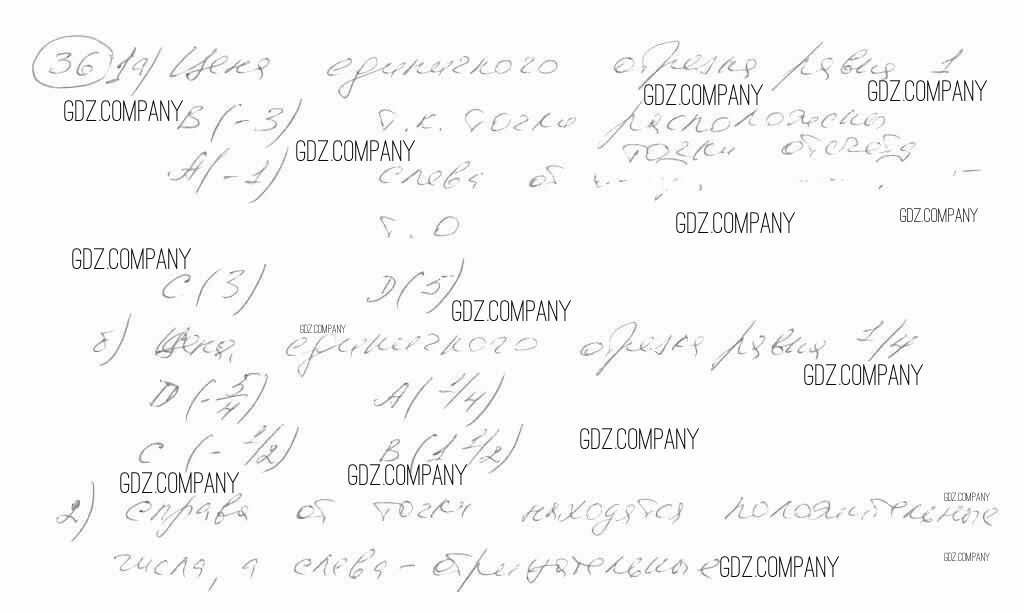 36 1а) Цена единичного отрезка равна 1
GDZ.COMPANY GDZ.COMPANY GDZ.COMPANY
В(-3) т.к. точки расположены
GDZ.COMPANY точки отсчёта
А(-1) слева от
т. О GDZ.COMPANY GDZ.COMPANY
GDZ.COMPANY
С(3) D(5) GDZ.COMPANY
GDZ.COMPANY
б) Цена единичного отрезка равна 1/4
GDZ.COMPANY
D(-5/4) А(1/4)
С(-1/2) В(1 1/2) GDZ.COMPANY
GDZ.COMPANY GDZ.COMPANY GDZ.COMPANY
2) справа от точки находятся положительные
числа, а слева - отрицательные GDZ.COMPANY GDZ.COMPANY